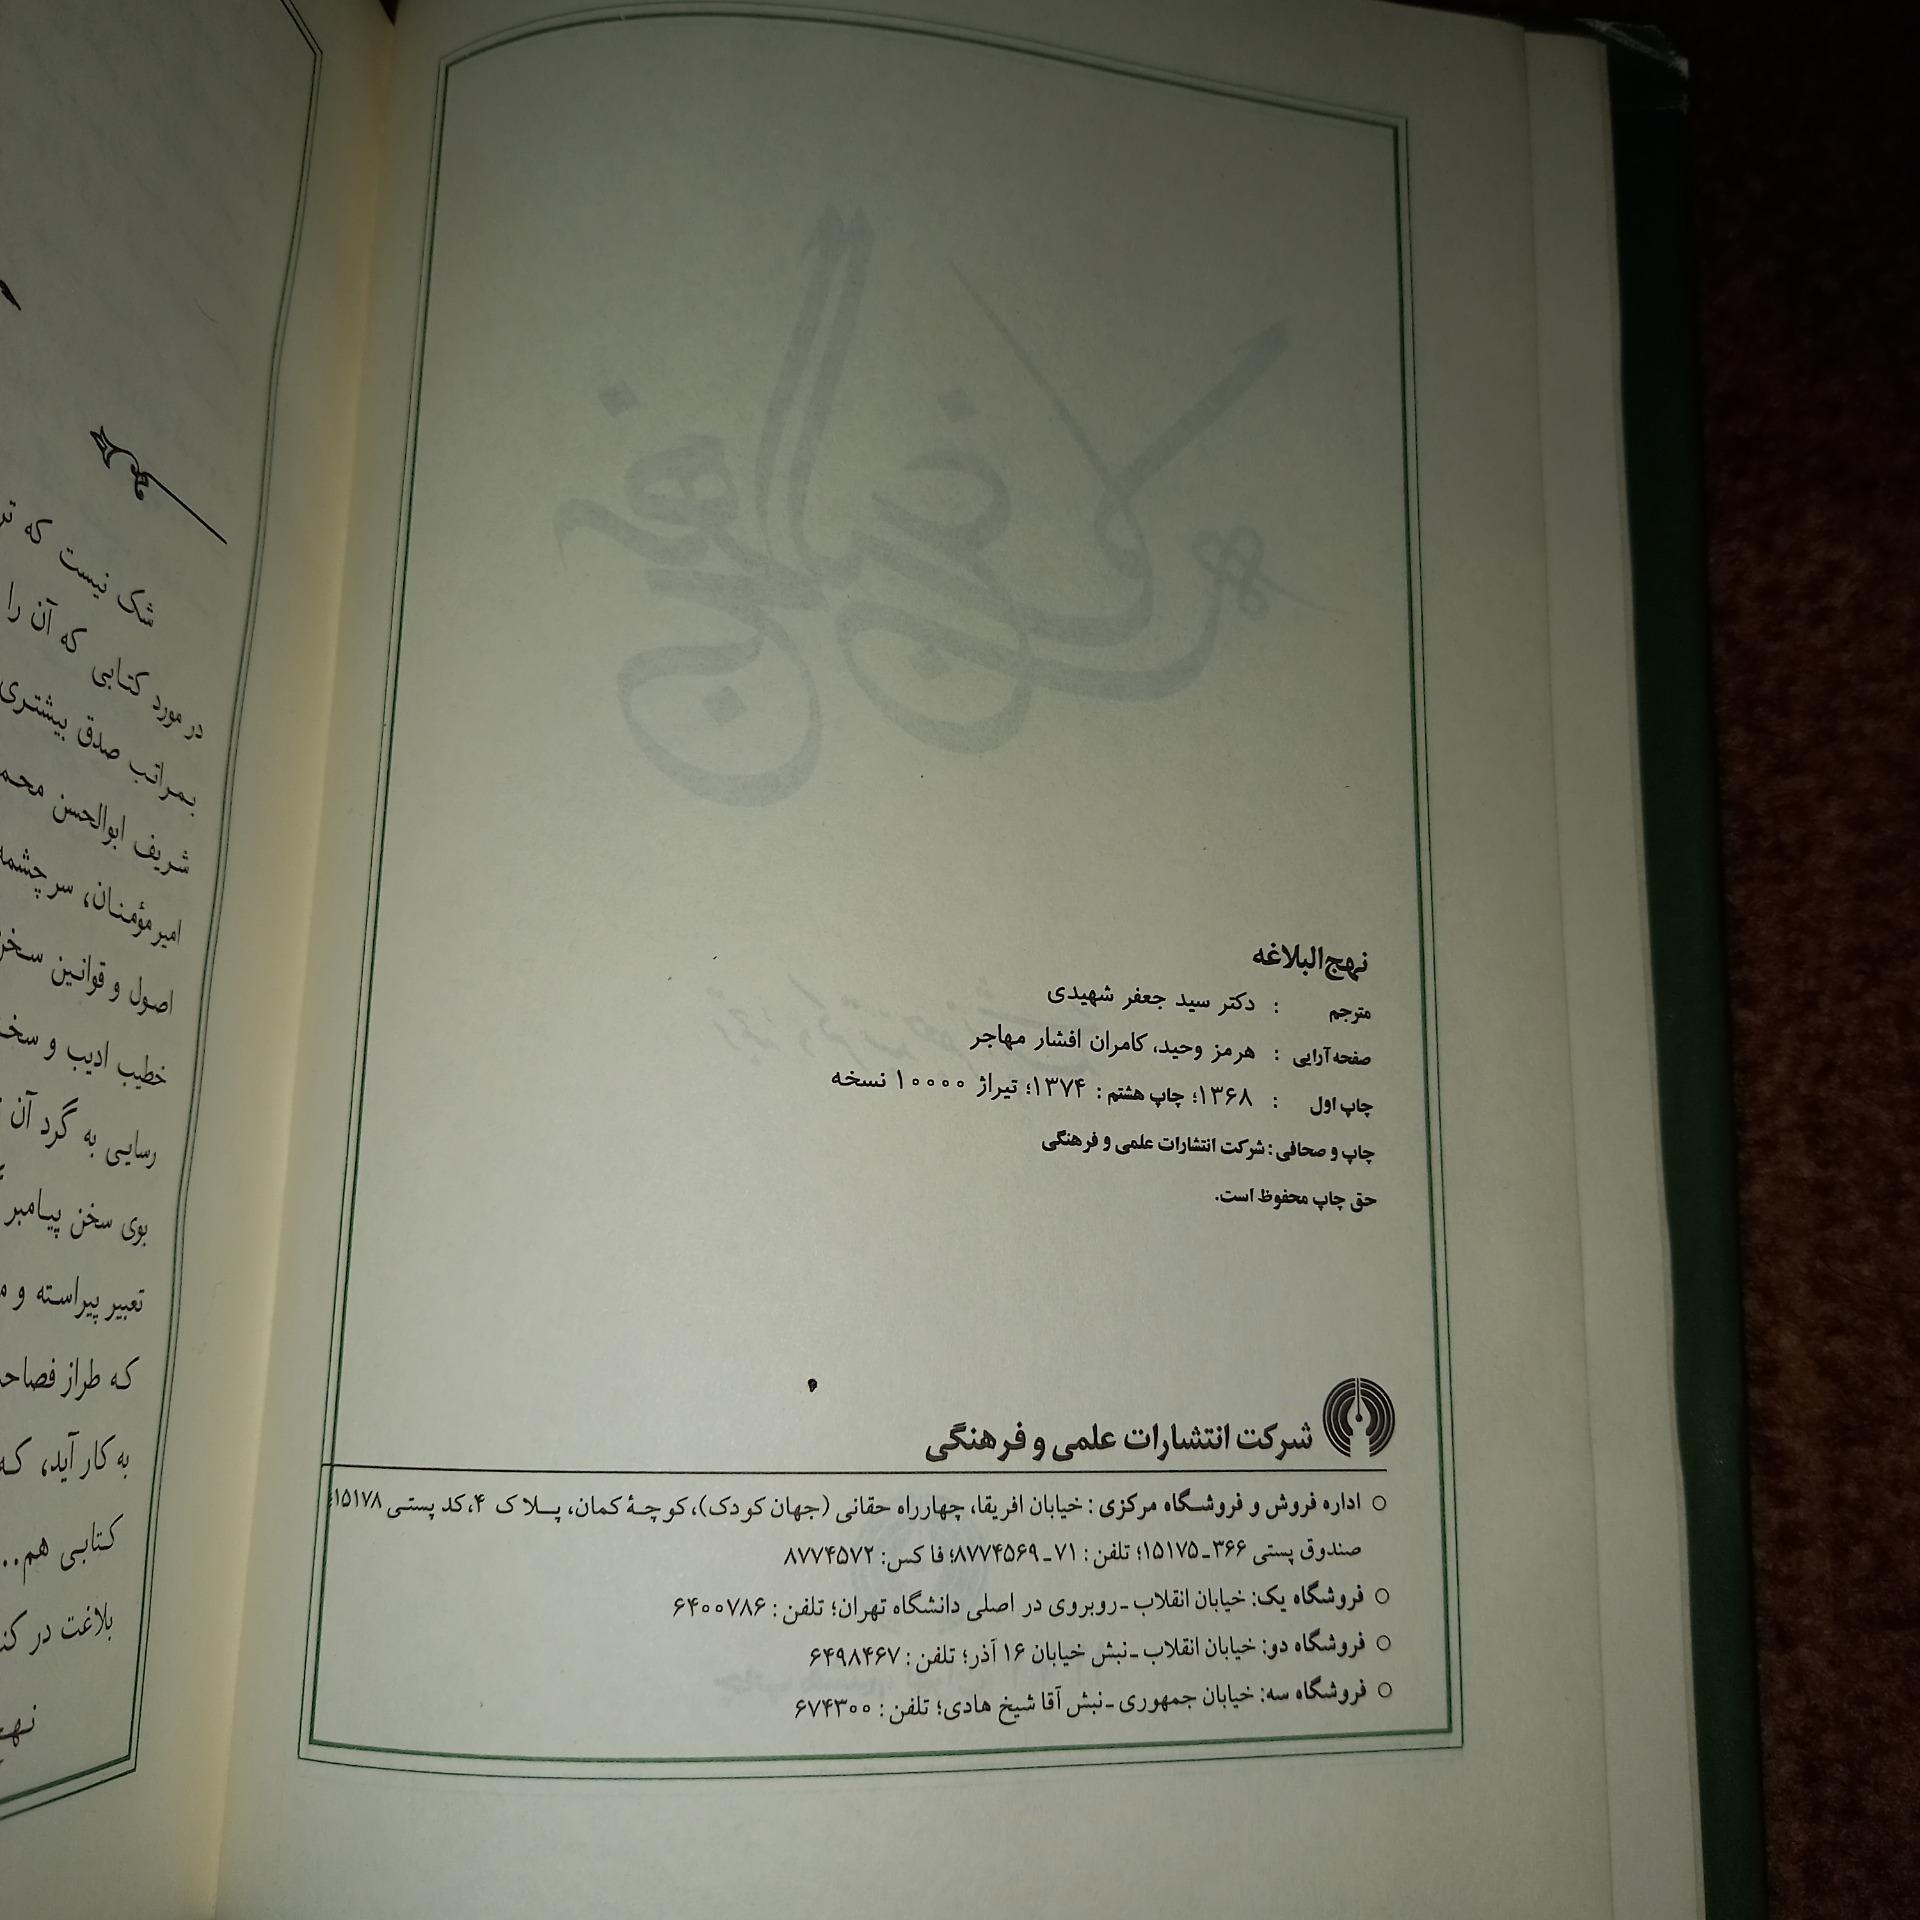 نهج‌البلاغه
مترجم : دکتر سید جعفر شهیدی
صفحه‌آرایی : هرمز وحید، کامران افشار مهاجر
چاپ اول : ۱۳۶۸؛ چاپ هشتم : ۱۳۷۴؛ تیراژ ۱۰۰۰۰ نسخه
چاپ و صحافی : شرکت انتشارات علمی و فرهنگی
حق چاپ محفوظ است.
شرکت انتشارات علمی و فرهنگی
○ اداره فروش و فروشگاه مرکزی : خیابان افریقا، چهارراه حقانی (جهان کودک)، کوچهٔ کمان، پلاک ۴، کد پستی ۱۵۱۷۸؛
صندوق پستی ۳۶۶ـ۱۵۱۷۵؛ تلفن : ۷۱ـ۸۷۷۴۵۶۹؛ فاکس: ۸۷۷۴۵۷۲
○ فروشگاه یک: خیابان انقلاب ـ روبروی در اصلی دانشگاه تهران؛ تلفن : ۶۴۰۰۷۸۶
○ فروشگاه دو: خیابان انقلاب ـ نبش خیابان ۱۶ آذر؛ تلفن : ۶۴۹۸۴۶۷
○ فروشگاه سه: خیابان جمهوری ـ نبش آقا شیخ هادی؛ تلفن : ۶۷۴۳۰۰
شک نیست که
در مورد کتابی که آن را
بمراتب صدق بیشتری
شریف ابوالحسن
امیر مؤمنان، سرچشمه
اصول و قوانین
خطیب ادیب و
رسایی به گرد آن
بوی سخن پیامبر
تعبیر پیراسته و
که طراز
به کار آید،
کتابی هم...
بلاغت در